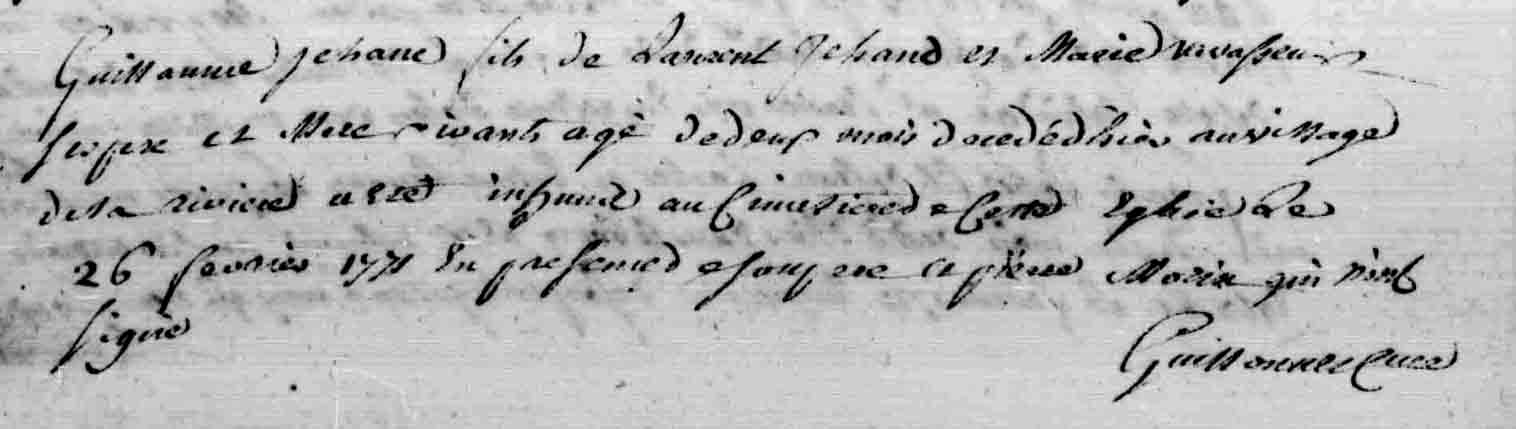 Guillaume Jehane fils de Laurent Jehand et Marie
ses pere et Mere vivants agé de deux mois decedé hier au village
de la riviere a eté inhumé au Cimetiere de Cette Eglise Le
26 fevrier 1771 En presence de son pere et pierre Morin qui n'ont
signé
Guillonnet Curé